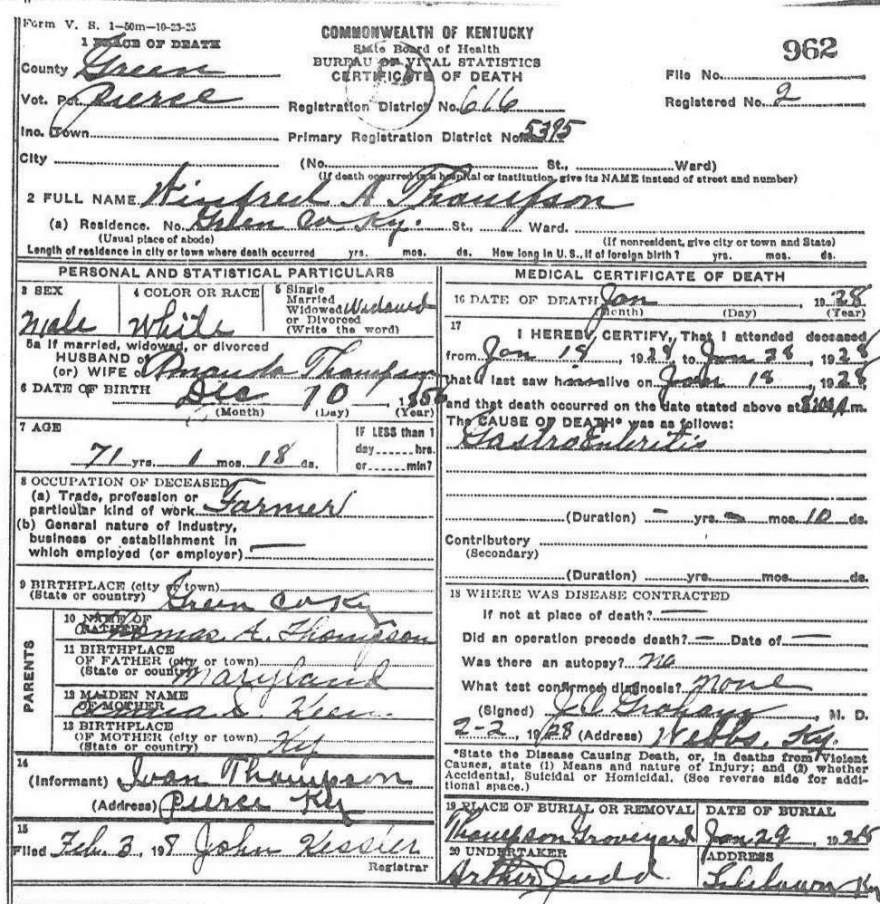 Form V. S. 1-50m-10-23-25
COMMONWEALTH OF KENTUCKY
State Board of Health
BUREAU OF VITAL STATISTICS
CERTIFICATE OF DEATH
962
File No.
Registered No. 2
1 PLACE OF DEATH
County Green
Vot. Pct. Pierce
Registration District No. 616
Inc. Town
Primary Registration District No. 5395
City (No. St., Ward)
(If death occurred in a hospital or institution, give its NAME instead of street and number)
2 FULL NAME Winfred A Thompson
(a) Residence. No. Green Co. Ky. St., Ward.
(Usual place of abode) (If nonresident, give city or town and State)
Length of residence in city or town where death occurred yrs. mos. ds. How long in U. S., if of foreign birth? yrs. mos. ds.
PERSONAL AND STATISTICAL PARTICULARS
3 SEX
Male
4 COLOR OR RACE
White
5 Single
Married
Widowed Widowed
or Divorced
(Write the word)
5a If married, widowed, or divorced
HUSBAND of
(or) WIFE of Amanda Thompson
6 DATE OF BIRTH Dec 10 1856
(Month) (Day) (Year)
7 AGE
71 yrs. 1 mos. 18 ds.
IF LESS than 1
day hrs.
or min?
8 OCCUPATION OF DECEASED
(a) Trade, profession or
particular kind of work Farmer
(b) General nature of industry,
business or establishment in
which employed (or employer) —
9 BIRTHPLACE (city or town)
(State or country) Green Co Ky
PARENTS
10 NAME OF
FATHER Thomas A. Thompson
11 BIRTHPLACE
OF FATHER (city or town)
(State or country) Maryland
12 MAIDEN NAME
OF MOTHER S.
13 BIRTHPLACE
OF MOTHER (city or town)
(State or country) Ky
14
(Informant) Ivan Thompson
(Address) Pierce Ky
15
Filed Feb. 3, 198 John Kessler
Registrar
MEDICAL CERTIFICATE OF DEATH
16 DATE OF DEATH Jan 1928
(Month) (Day) (Year)
17
I HEREBY CERTIFY, That I attended deceased
from Jan 18, 1928 to Jan 28, 1928
that I last saw him alive on Jan 18, 1928,
and that death occurred on the date stated above at m.
The CAUSE OF DEATH* was as follows:
Gastro Enteritis
(Duration) — yrs. — mos. 10 ds.
Contributory
(Secondary)
(Duration) yrs. mos. ds.
18 WHERE WAS DISEASE CONTRACTED
If not at place of death? —
Did an operation precede death? — Date of —
Was there an autopsy? No
What test confirmed diagnosis? None
(Signed) J C Graham, M. D.
2-2, 1928 (Address) Webbs, Ky.
*State the Disease Causing Death, or, in deaths from Violent
Causes, state (1) Means and nature of Injury; and (2) whether
Accidental, Suicidal or Homicidal. (See reverse side for addi-
tional space.)
19 PLACE OF BURIAL OR REMOVAL
Thompson Graveyard
DATE OF BURIAL
Jan 29 1928
20 UNDERTAKER
Arther Judd
ADDRESS
Ky